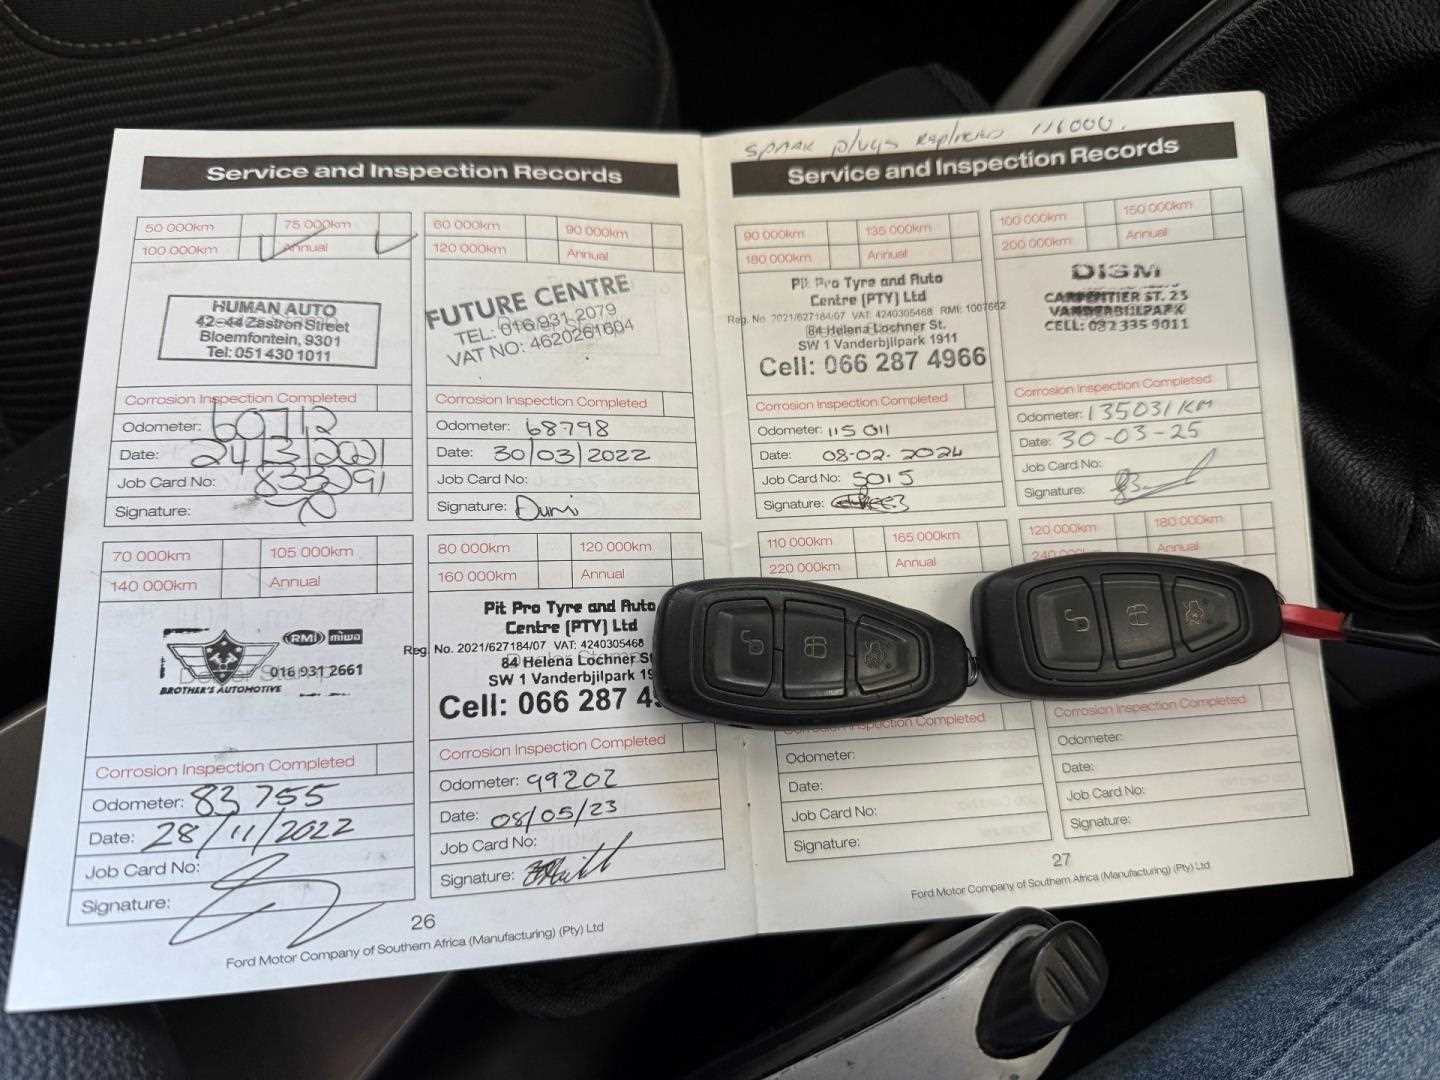 Service and Inspection Records
50 000km
75 000km
100 000km
Annual
HUMAN AUTO
42-44 Zastron Street
Bloemfontein, 9301
Tel: 051 430 1011
Corrosion Inspection Completed
Odometer: 60712
Date: 24/3/2021
Job Card No: 833091
Signature:
60 000km
90 000km
120 000km
Annual
FUTURE CENTRE
TEL: 016 931 2079
VAT NO: 4620261604
Corrosion Inspection Completed
Odometer: 68798
Date: 30/03/2022
Job Card No:
Signature:
70 000km
105 000km
140 000km
Annual
RMI
miwa
016 931 2661
BROTHER'S AUTOMOTIVE
Corrosion Inspection Completed
Odometer: 83 755
Date: 28/11/2022
Job Card No:
Signature:
80 000km
120 000km
160 000km
Annual
Pit Pro Tyre and Auto
Centre (PTY) Ltd
Reg. No. 2021/627184/07 VAT: 4240305468
84 Helena Lochner St
SW 1 Vanderbjilpark 19
Cell: 066 287 4
Corrosion Inspection Completed
Odometer: 99202
Date: 08/05/23
Job Card No:
Signature:
26
Ford Motor Company of Southern Africa (Manufacturing) (Pty) Ltd
SPARK plugs replaced 116000.
Service and Inspection Records
90 000km
135 000km
180 000km
Annual
Pit Pro Tyre and Auto
Centre (PTY) Ltd
Reg. No. 2021/627184/07 VAT: 4240305468 RMI: 1007662
84 Helena Lochner St.
SW 1 Vanderbjilpark 1911
Cell: 066 287 4966
Corrosion Inspection Completed
Odometer: 115011
Date: 08-02-2024
Job Card No: 5015
Signature:
100 000km
150 000km
200 000km
Annual
DISM
CARPENTIER ST. 23
VANDERBIJLPARK
CELL: 082 335 9011
Corrosion Inspection Completed
Odometer: 135031KM
Date: 30-03-25
Job Card No:
Signature:
110 000km
165 000km
220 000km
Annual
Corrosion Inspection Completed
Odometer:
Date:
Job Card No:
Signature:
120 000km
180 000km
Annual
Corrosion Inspection Completed
Odometer:
Date:
Job Card No:
Signature:
27
Ford Motor Company of Southern Africa (Manufacturing) (Pty) Ltd